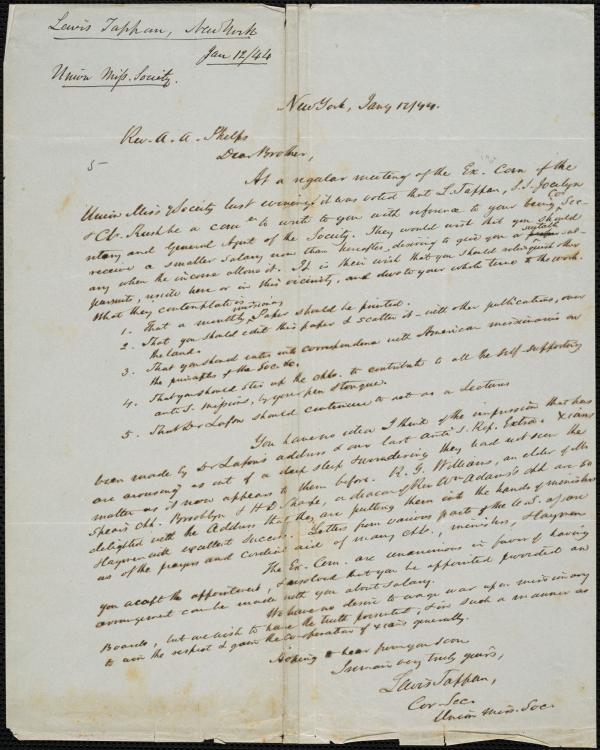 Lewis Tappan, New York
Jan 12/44
Union Miss. Society.
New York, Jany 12/44.
Rev. A. A. Phelps
5-
Dear Brother,
At a regular meeting of the Ex. Com of the
Union Miss Society last evening it was voted that L. Tappan, S. S. Jocelyn
& Ch. Rush be a com ee to write to you with reference to your being Cor Sec-
retary and General Agent of the Society. They would wish that you should
receive a smaller salary now than heretofore, desiring to give you a suitable sal-
ary when the income allows it. It is their wish that you should relinquish other
pursuits, reside here or in this vicinity, and devote your whole time to the work.
What they contemplate is
1. That a monthly missionary Paper should be printed.
2. That you should edit this paper & scatter it with other publications, over
the land.
3. That you should enter into correspondence with American missionaries on
the principles of the Soc. &c.
4. That you should stir up the chhs. to contribute to all the self-supporting
anti S. missions, by your pen & tongue.
5. That Dr Lafon should continue to act as a Lecturer
You have no idea I think of the impression that has
been made by Dr Lafon's address & our last Anti S. Rep. Extra. Xians
are arousing as out of a deep sleep & wondering they had not seen the
matter as it now appears to them before. R. G. Williams, an elder of Mr
Spear's chh. Brooklyn & H. D. Sharpe, a deacon of Rev. Wm Adams's chh are so
delighted with the Address that they are putting them into the hands of ministers
&c with excellent success. Letters from various parts of the U.S. assure
us of the prayers and cordial aid of many chhs., ministers, laymen
The Ex. Com. are unanimous in favor of having
you accept the appointment, & resolved that you be appointed provided an
arrangement can be made with you about salary.
We have no desire to wage war upon missionary
Boards, but we wish to have the truth presented, & in such a manner as
to win the respect & gain the co-operation of Xians generally.
Hoping to hear from you soon
I remain very truly yours,
Lewis Tappan,
Cor. Sec.
Union Miss. Soc.